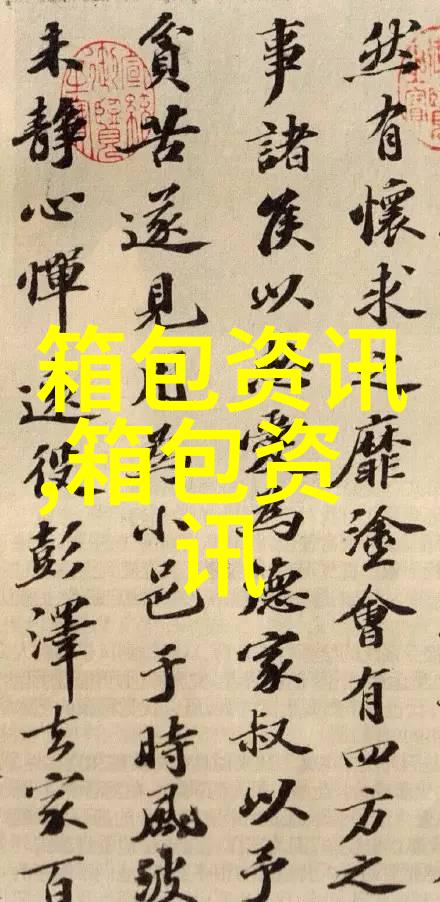 然有懷求之靡塗會有四方之
事諸侯以愛為德家叔以予
貧苦遂見小邑于時風波
未靜心憚遠役彭澤去家百
箱包资讯
,箱包资
讯